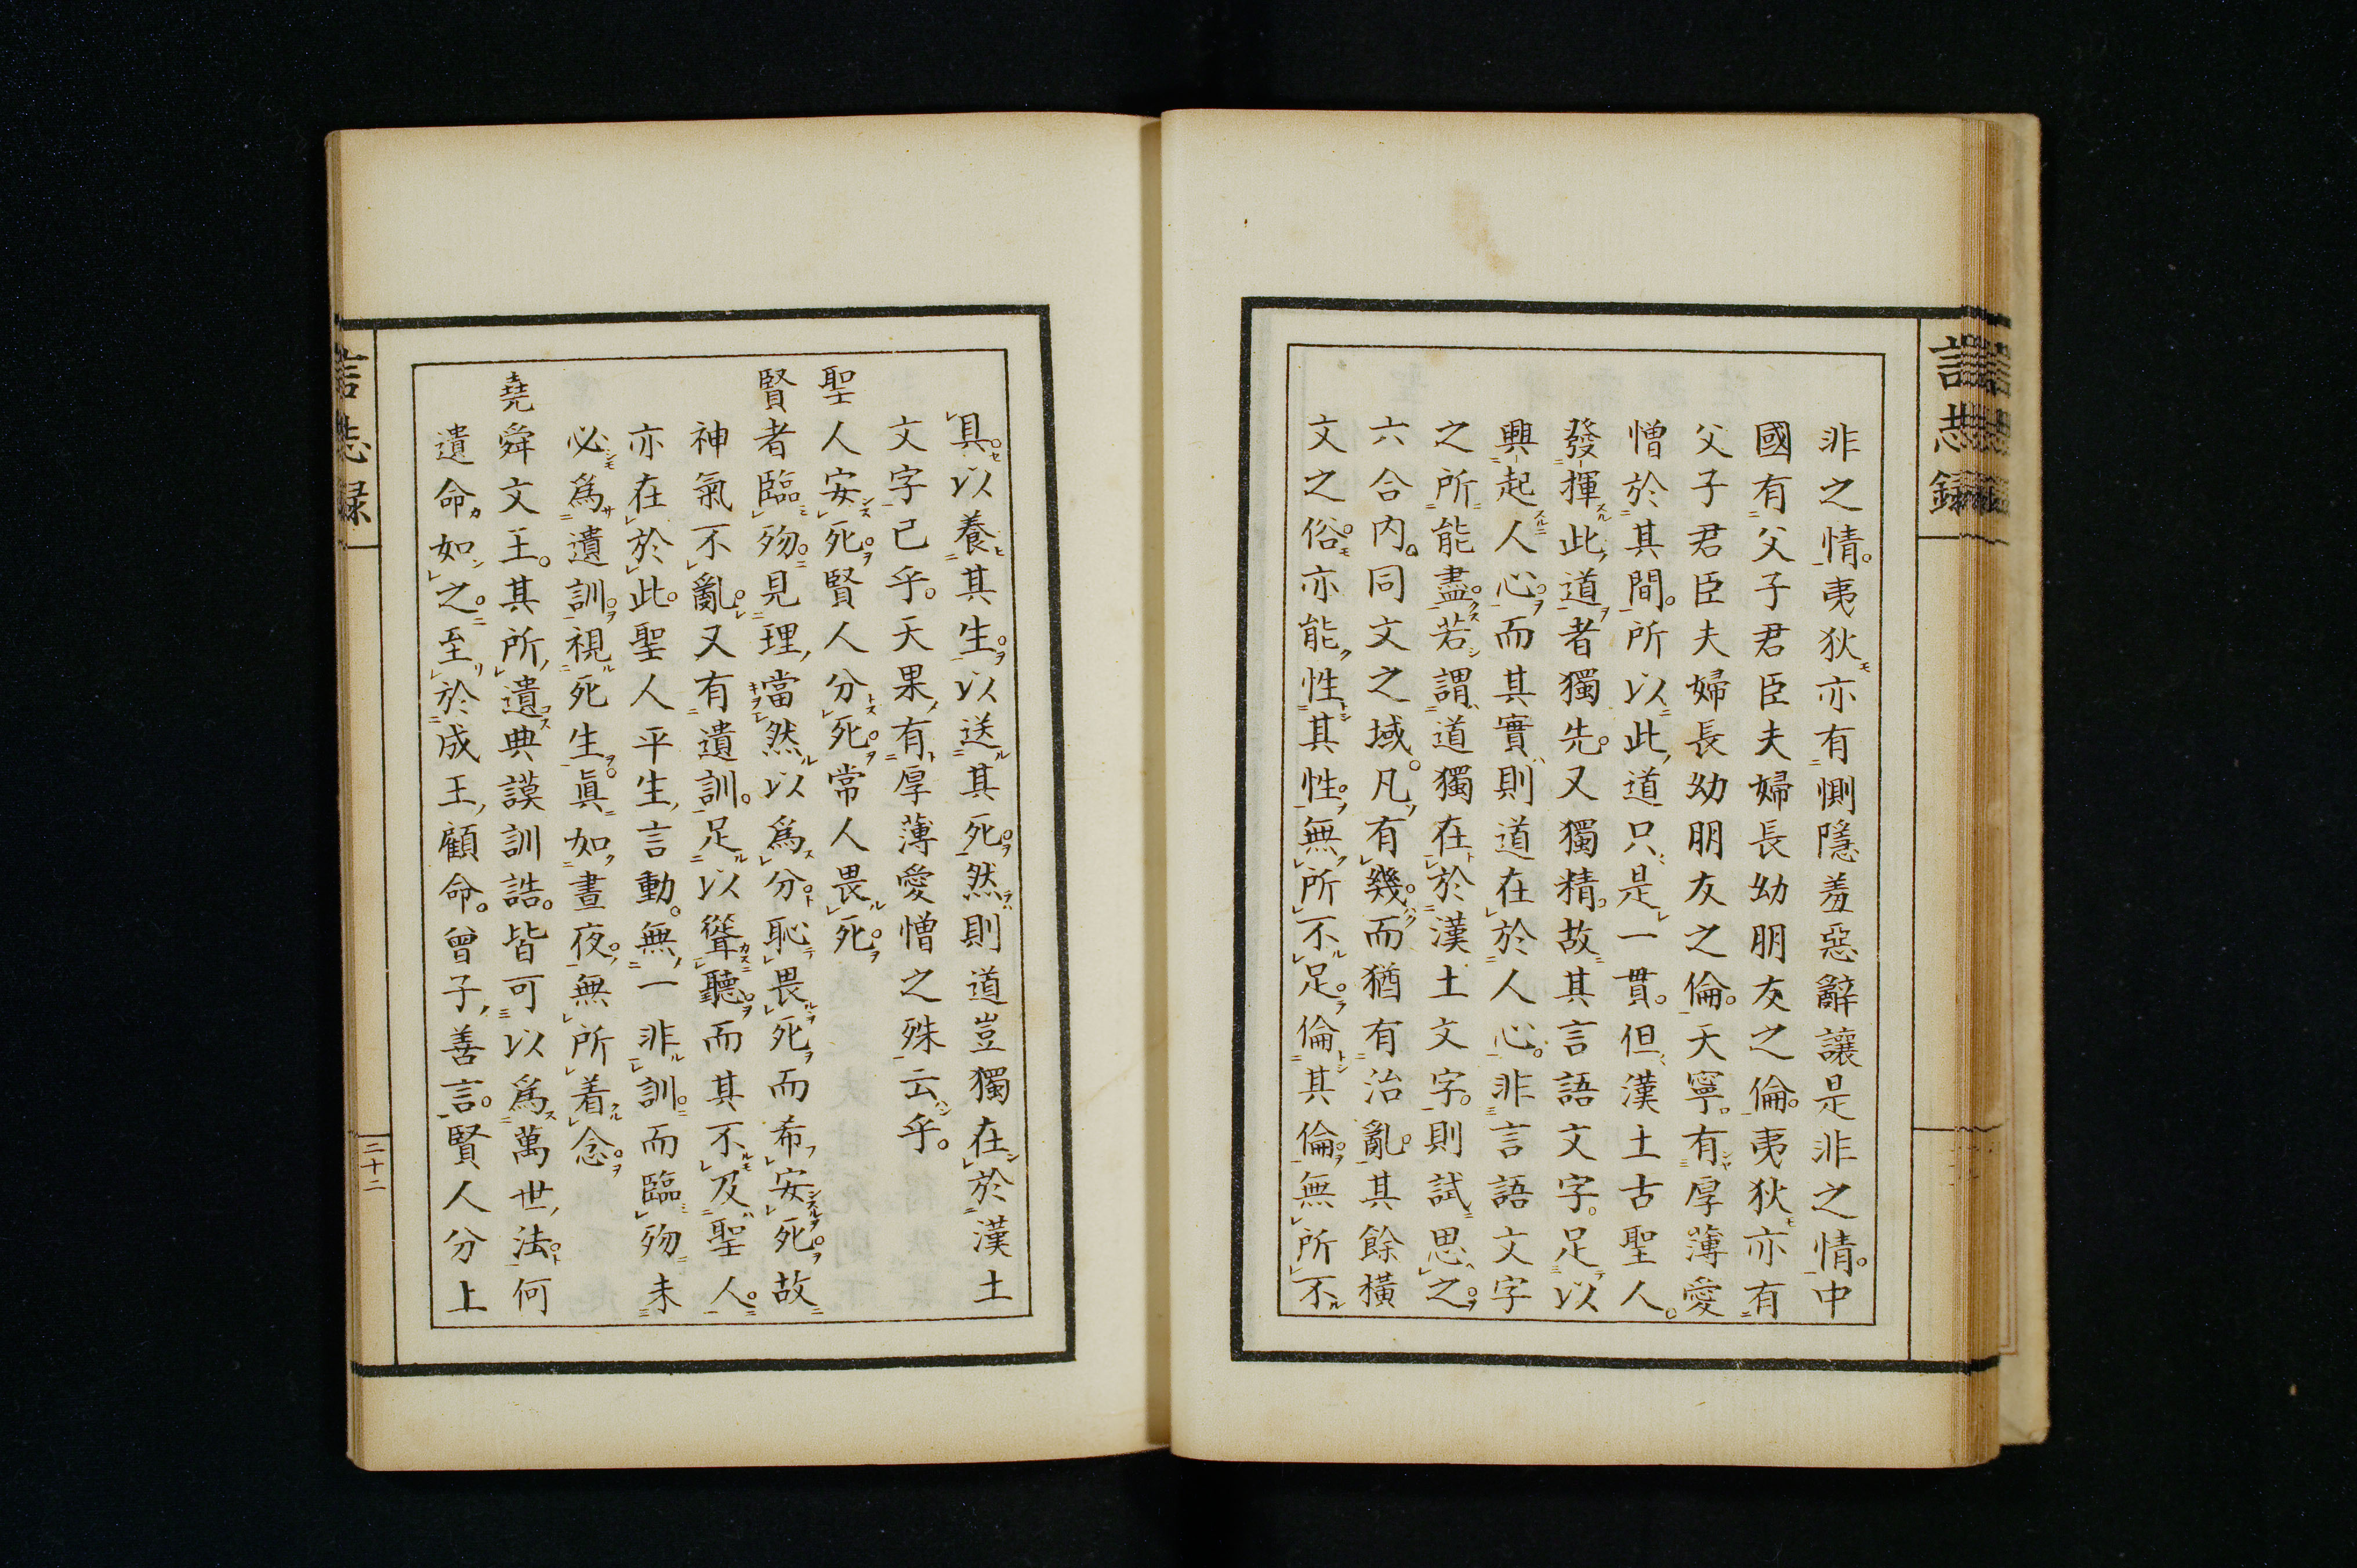 言志録
非之情。夷狄亦有惻隱羞惡辭讓是非之情。中
國有父子君臣夫婦長幼朋友之倫。夷狄亦有
父子君臣夫婦長幼朋友之倫。天寧有厚薄愛
憎於其間。所以此道只是一貫。但漢土古聖人。
發揮此道者獨先。又獨精。故其言語文字。足以
興起人心。而其實則道在於人心。非言語文字
之所能盡。若謂道獨在於漢土文字。則試思之。
六合内。同文之域。凡有幾。而猶有治亂。其餘橫
文之俗。亦能性其性。無所不足。倫其倫。無所不
具。以養其生。以送其死。然則道豈獨在於漢土
文字已乎。天果有厚薄愛憎之殊云乎。
聖人安死。賢人分死。常人畏死。
賢者臨歾。見理當然。以爲分。恥畏死。而希安死。故
神氣不亂。又有遺訓。足以聳聽。而其不及聖人。
亦在於此。聖人平生言動。無一非訓。而臨歾未
必爲遺訓。視死生。眞如晝夜。無所着念。
堯舜文王。其所遺典謨訓誥。皆可以爲萬世法。何
遺命如之。至於成王顧命。曾子善言。賢人分上
言志録
二十二